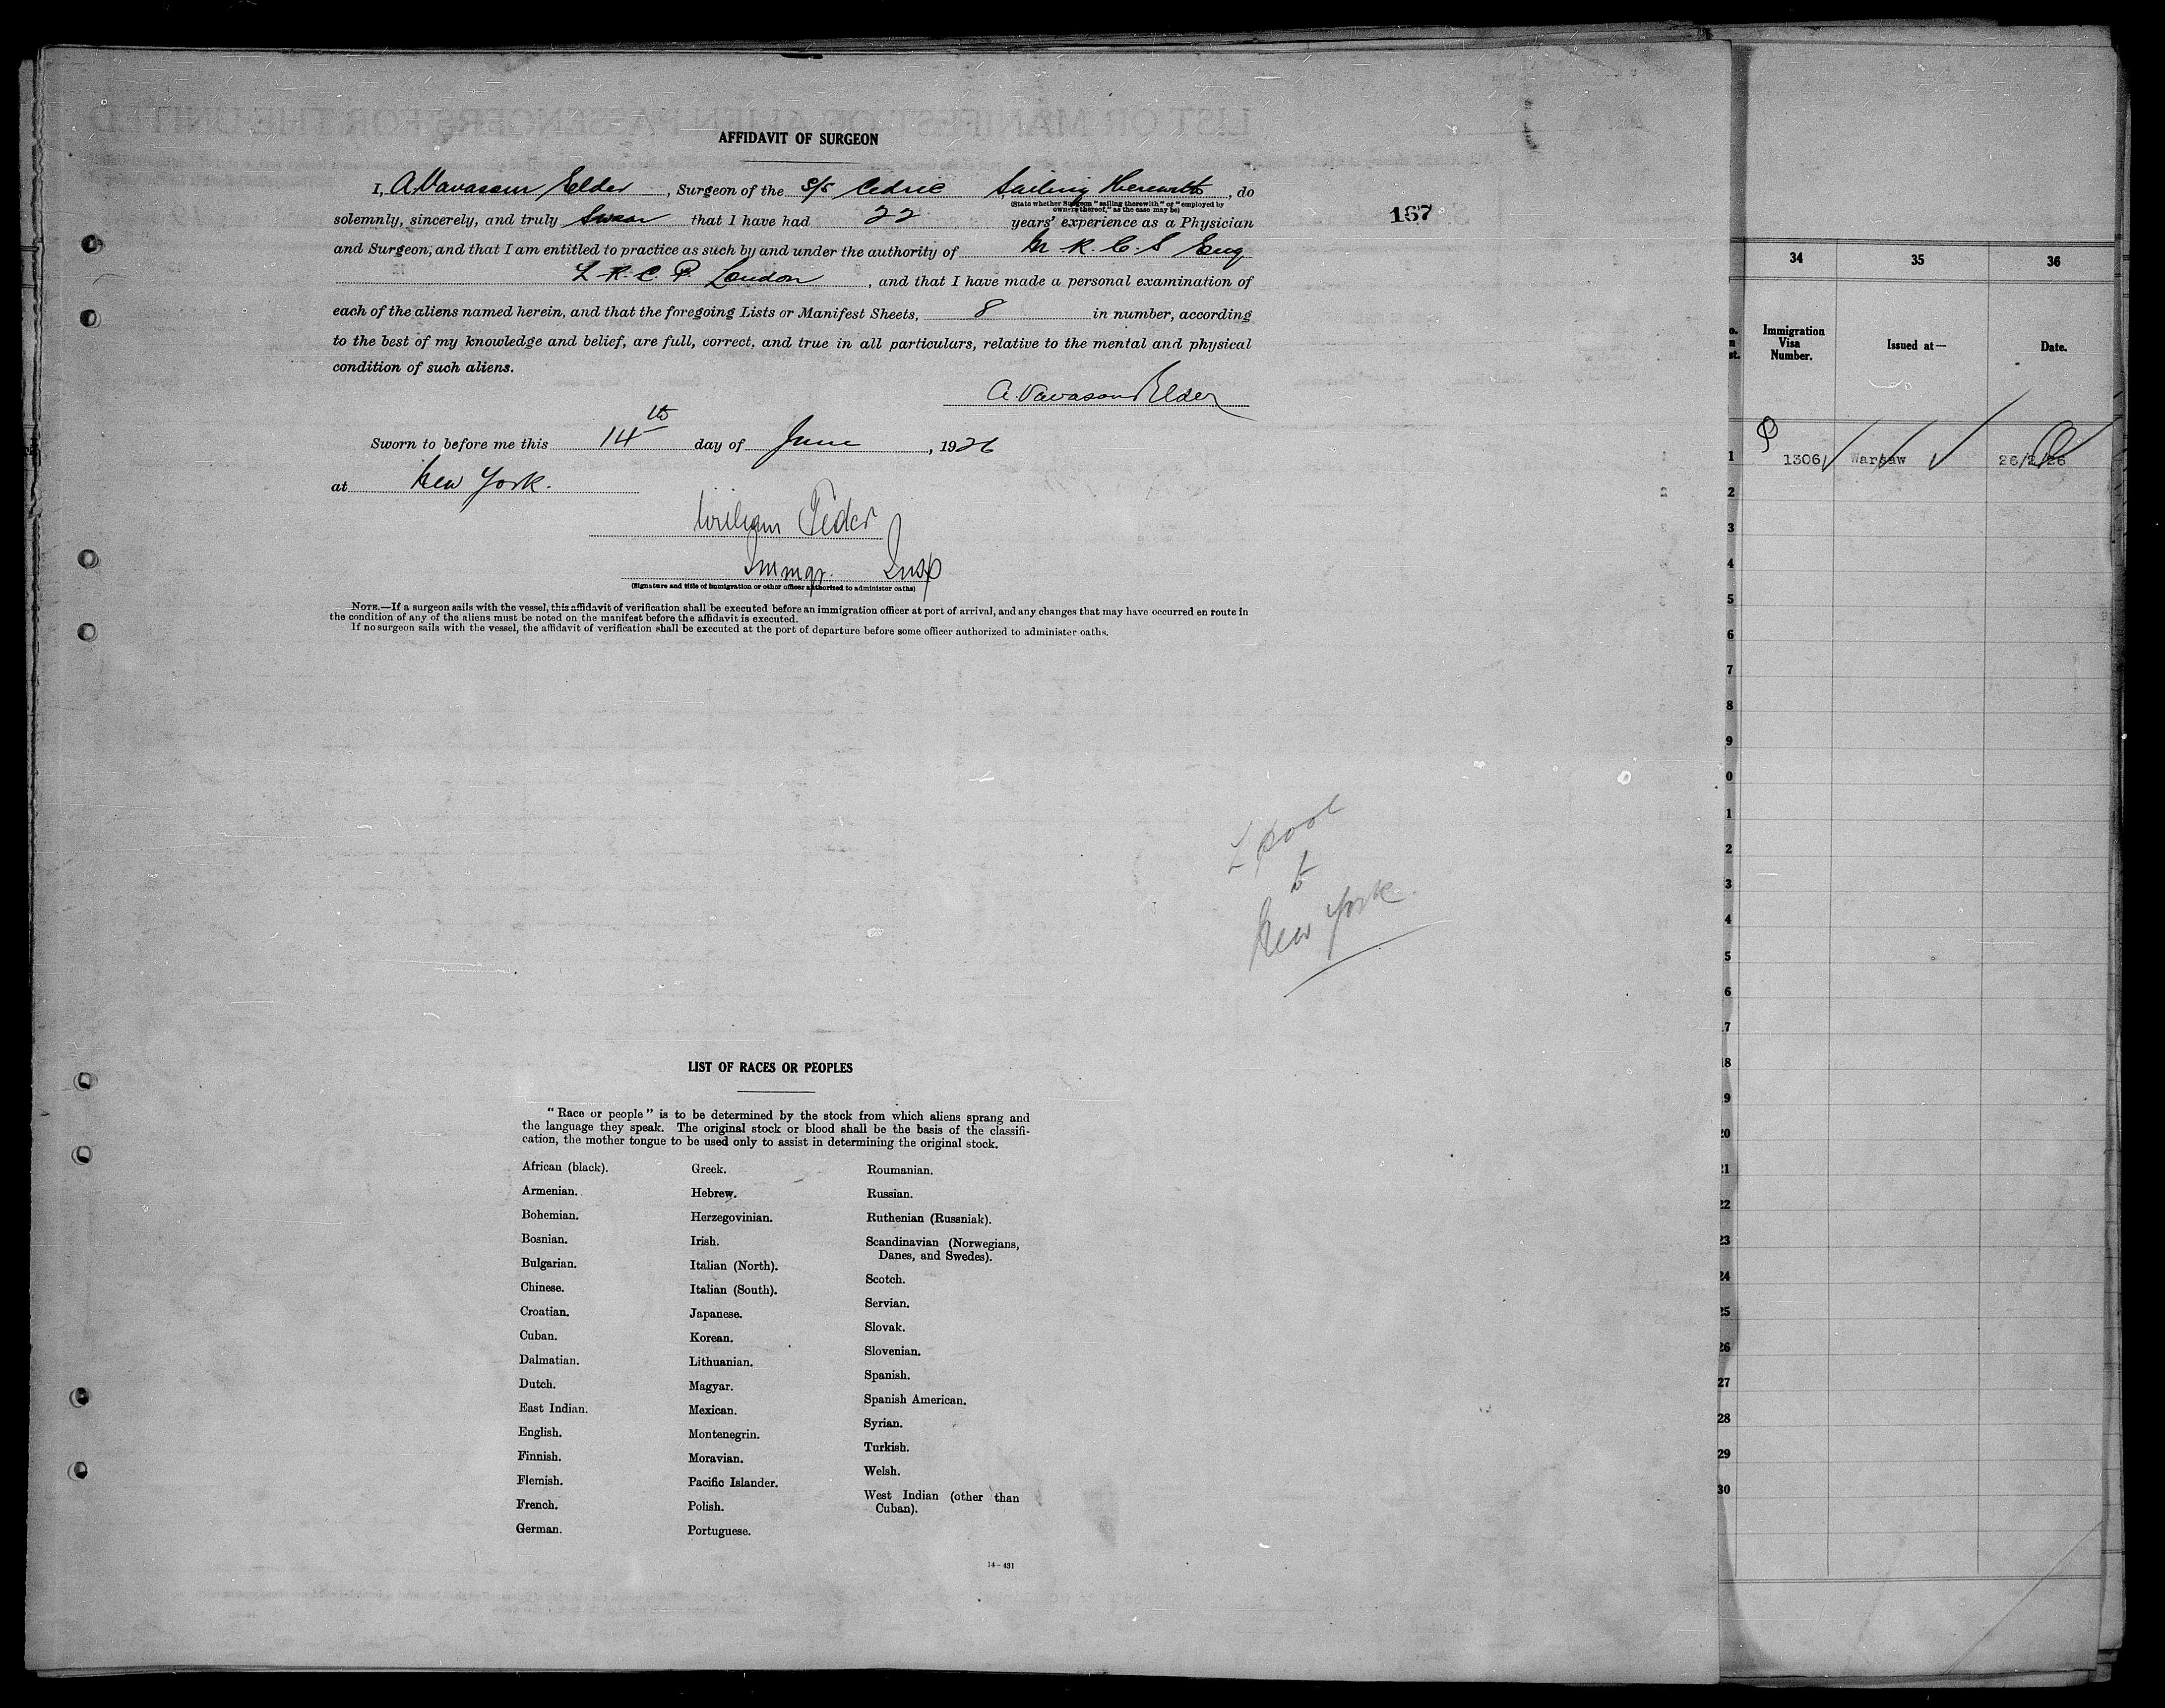 AFFIDAVIT OF SURGEON
I, A. Vavasour Elder, Surgeon of the S/S Cedric, Sailing Therewith, do
(State whether Surgeon "sailing therewith" or "employed by
owners thereof," as the case may be)
solemnly, sincerely, and truly Swear that I have had 22 years' experience as a Physician
and Surgeon, and that I am entitled to practice as such by and under the authority of M R. C. S Eng
L R. C. P. London, and that I have made a personal examination of
each of the aliens named herein, and that the foregoing Lists or Manifest Sheets, 8 in number, according
to the best of my knowledge and belief, are full, correct, and true in all particulars, relative to the mental and physical
condition of such aliens.
A. Vavasour Elder
Sworn to before me this 14th day of June, 1926
at New York.
William
Immgr. Insp
(Signature and title of immigration or other officer authorized to administer oaths)
NOTE.—If a surgeon sails with the vessel, this affidavit of verification shall be executed before an immigration officer at port of arrival, and any changes that may have occurred en route in
the condition of any of the aliens must be noted on the manifest before the affidavit is executed.
If no surgeon sails with the vessel, the affidavit of verification shall be executed at the port of departure before some officer authorized to administer oaths.
167
L'pool
to
New York
LIST OF RACES OR PEOPLES
"Race or people" is to be determined by the stock from which aliens sprang and
the language they speak. The original stock or blood shall be the basis of the classifi-
cation, the mother tongue to be used only to assist in determining the original stock.
African (black).
Armenian.
Bohemian.
Bosnian.
Bulgarian.
Chinese.
Croatian.
Cuban.
Dalmatian.
Dutch.
East Indian.
English.
Finnish.
Flemish.
French.
German.
Greek.
Hebrew.
Herzegovinian.
Irish.
Italian (North).
Italian (South).
Japanese.
Korean.
Lithuanian.
Magyar.
Mexican.
Montenegrin.
Moravian.
Pacific Islander.
Polish.
Portuguese.
Roumanian.
Russian.
Ruthenian (Russniak).
Scandinavian (Norwegians,
Danes, and Swedes).
Scotch.
Servian.
Slovak.
Slovenian.
Spanish.
Spanish American.
Syrian.
Turkish.
Welsh.
West Indian (other than
Cuban).
14-431
34 35 36
Immigration
Visa
Number.
Issued at—
Date.
1 1306 Warsaw 26/2/26
2
3
4
5
6
7
8
9
0
1
2
3
4
5
6
17
18
19
20
21
22
23
24
25
26
27
28
29
30